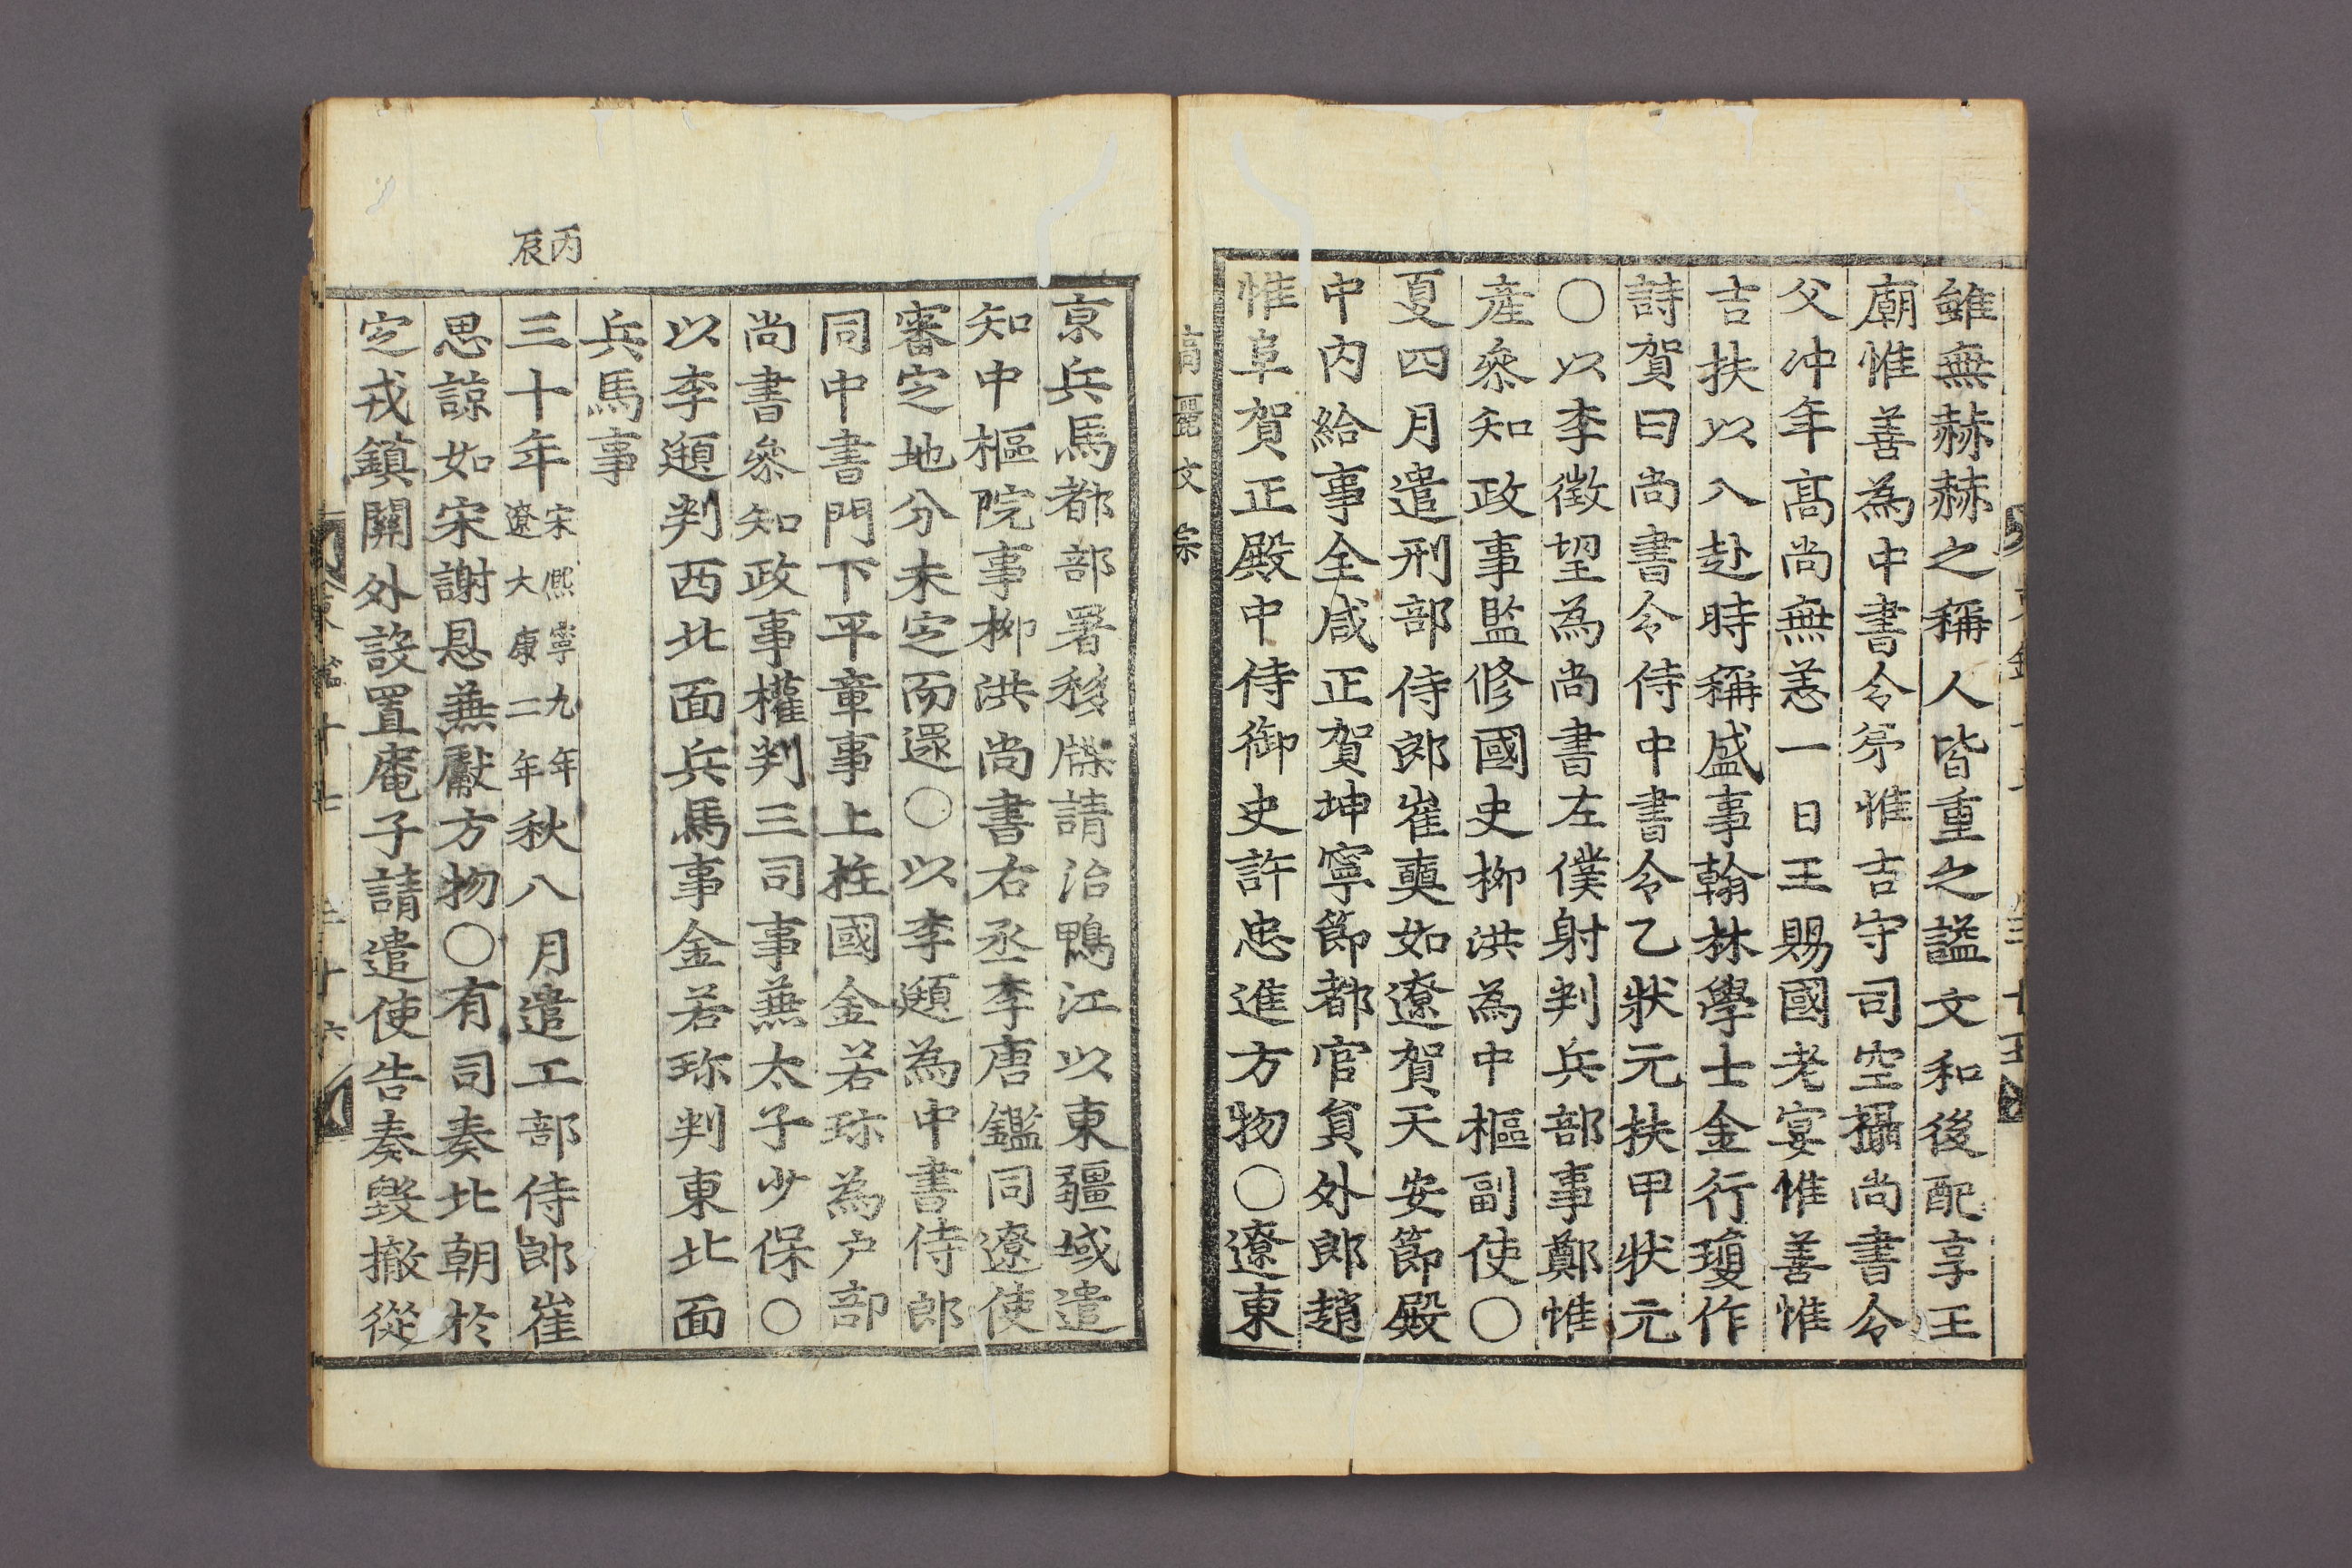 雖無赫赫之稱人皆重之謚文和後配享王
廟惟善爲中書令弟惟吉守司空攝尚書令
父冲年高尚無恙一日王賜國老宴惟善惟
吉扶以入赴時稱盛事翰林學士金行瓊作
詩賀曰尚書令侍中書令乙狀元扶甲狀元
○以李徵望爲尚書左僕射判兵部事鄭惟
產叅知政事監修國史柳洪爲中樞副使○
夏四月遣刑部侍郎崔奭如遼賀天安節殿
中內給事全咸正賀坤寧節都官員外郎趙
惟阜賀正殿中侍御史許忠進方物○遼東
高麗文宗
京兵馬都部署移牒請治鴨江以東疆域遣
知中樞院事柳洪尚書右丞李唐鑑同遼使
審定地分未定而還○以李頲爲中書侍郎
同中書門下平章事上柱國金若珎爲户部
尚書叅知政事權判三司事兼太子少保○
以李頲判西北面兵馬事金若珎判東北面
兵馬事
丙辰
三十年宋熈寧九年遼大康二年秋八月遣工部侍郎崔
思諒如宋謝恩兼獻方物○有司奏北朝於
定戎鎮關外設置庵子請遣使告奏毀撤從